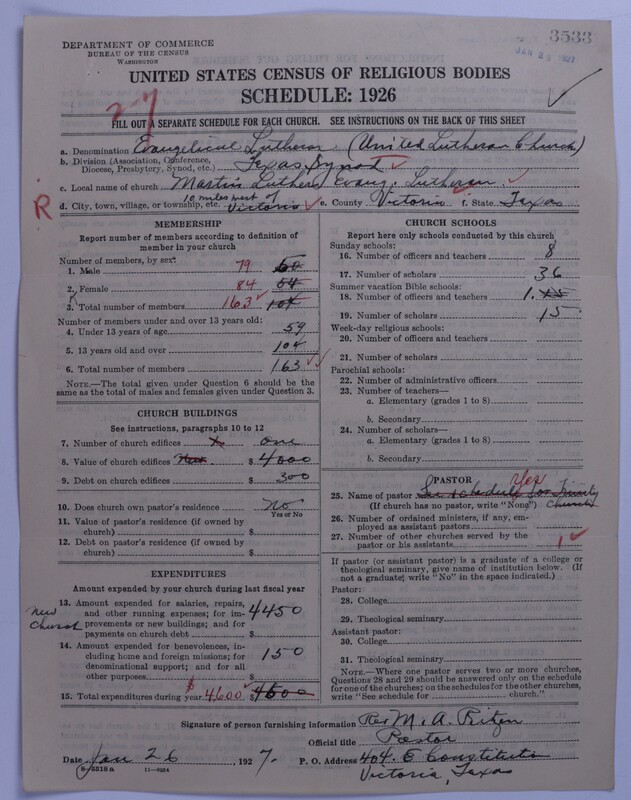 3533
JAN 29 1927
DEPARTMENT OF COMMERCE
BUREAU OF THE CENSUS
WASHINGTON
UNITED STATES CENSUS OF RELIGIOUS BODIES
SCHEDULE: 1926
2-7
FILL OUT A SEPARATE SCHEDULE FOR EACH CHURCH. SEE INSTRUCTIONS ON THE BACK OF THIS SHEET
a. Denomination Evangelical Lutheran (United Lutheran Church)
b. Division (Association, Conference, Diocese, Presbytery, Synod, etc.) Texas Synod
c. Local name of church Martin Luther Evang. Lutheran
R d. City, town, village, or township, etc. 10 miles west of Victoria e. County Victoria f. State Texas
MEMBERSHIP
Report number of members according to definition of
member in your church
Number of members, by sex:
1. Male 79 60
2. Female 84 64
3. Total number of members 163 104
Number of members under and over 13 years old:
4. Under 13 years of age 59
5. 13 years old and over 104
6. Total number of members 163
NOTE.—The total given under Question 6 should be
same as the total of males and females given under Question 3.
CHURCH BUILDINGS
See instructions, paragraphs 10 to 12
7. Number of church edifices one
8. Value of church edifices $ 4000
9. Debt on church edifices $ 300
10. Does church own pastor's residence No
Yes or No
11. Value of pastor's residence (if owned by
church) $
12. Debt on pastor's residence (if owned by
church) $
EXPENDITURES
Amount expended by your church during last fiscal year
New Church
13. Amount expended for salaries, repairs,
and other running expenses; for im-
provements or new buildings; and for
payments on church debt $ 4450
14. Amount expended for benevolences, in-
cluding home and foreign missions; for
denominational support; and for all
other purposes 150
15. Total expenditures during year $ 4600 4600
CHURCH SCHOOLS
Report here only schools conducted by this church
Sunday schools:
16. Number of officers and teachers 8
17. Number of scholars 36
Summer vacation Bible schools:
18. Number of officers and teachers 1.
19. Number of scholars 15
Week-day religious schools:
20. Number of officers and teachers
21. Number of scholars
Parochial schools:
22. Number of administrative officers
23. Number of teachers—
a. Elementary (grades 1 to 8)
b. Secondary
24. Number of scholars—
a. Elementary (grades 1 to 8)
b. Secondary
PASTOR
Yes
25. Name of pastor See schedule for Trinity Church
(If church has no pastor, write "None")
26. Number of ordained ministers, if any, em-
ployed as assistant pastors
27. Number of other churches served by the
pastor or his assistants 1
If pastor (or assistant pastor) is a graduate of a college or
theological seminary, give name of institution below. (If
not a graduate, write "No" in the space indicated.)
Pastor:
28. College
29. Theological seminary
Assistant pastor:
30. College
31. Theological seminary
NOTE.—Where one pastor serves two or more churches,
Questions 28 and 29 should be answered only on the schedule
for one of the churches; on the schedules for the other churches,
write "See schedule for church."
Signature of person furnishing information Rev M. A. Ritzen
Official title Pastor
Date Jan 26, 1927. P. O. Address 404. E Constitution
Victoria, Texas
8-5518 a 11-9024